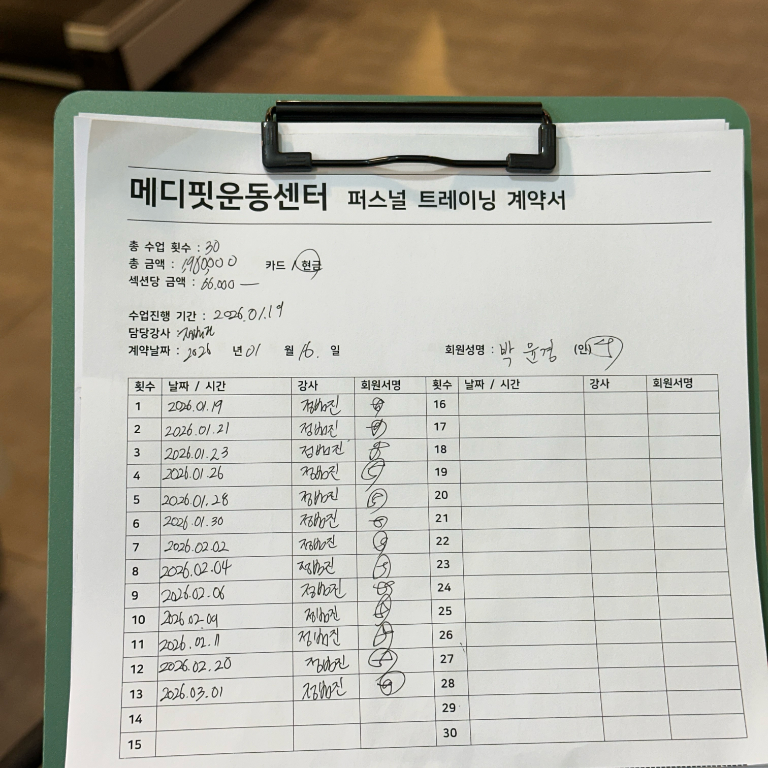 메디핏운동센터 퍼스널 트레이닝 계약서
총 수업 횟수 : 30
총 금액 : 1,980,000 카드 / 현금
섹션당 금액 : 66.000 —
수업진행 기간 : 2026.01.19
담당강사 :
계약날짜 : 2026 년 01 월 16. 일 회원성명 : 박 윤경 (인)
횟수 날짜 / 시간 강사 회원서명 횟수 날짜 / 시간 강사 회원서명
1 2026.01.19 정범진 16
2 2026.01.21 정범진 17
3 2026.01.23 정범진 18
4 2026.01.26 정범진 19
5 2026.01.28 정범진 20
6 2026.01.30 정범진 21
7 2026.02.02 정범진 22
8 2026.02.04 정범진 23
9 2026.02.06 정범진 24
10 2026.02.09 정범진 25
11 2026.02.11 정범진 26
12 2026.02.20 정범진 27
13 2026.03.01 정범진 28
14 29
15 30